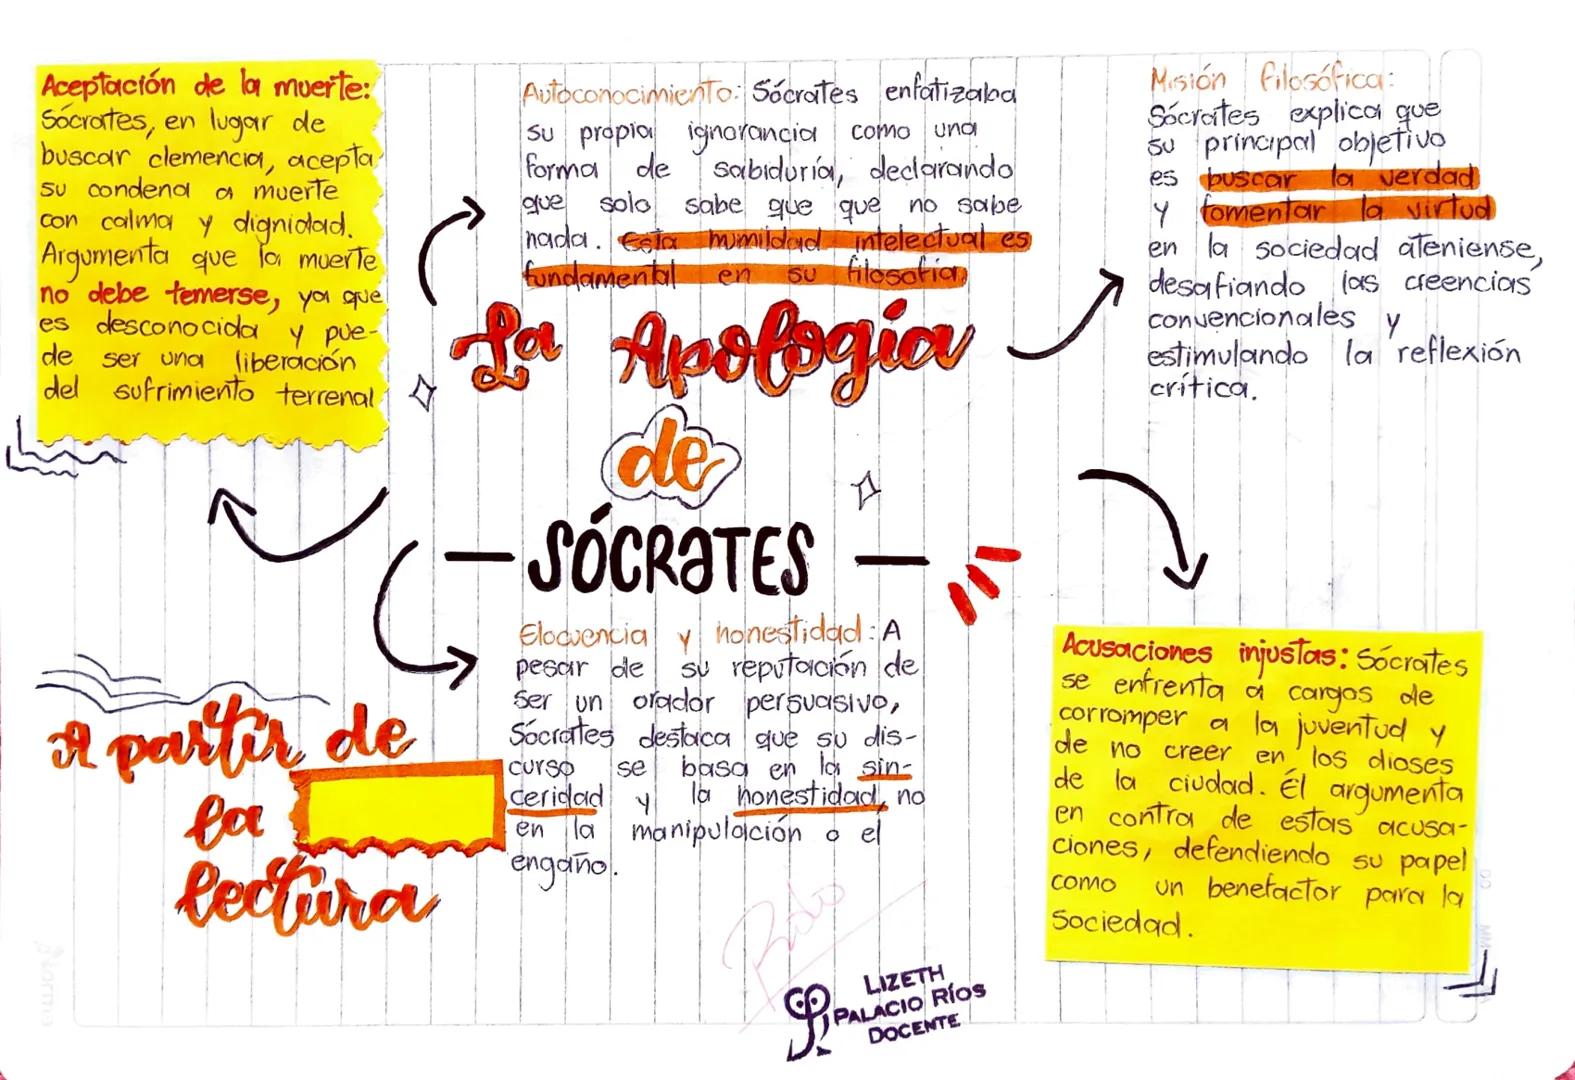 Aceptación de la muerte:
Sócrates, en lugar de
buscar clemencia, acepta
su condena a muerte
con calma y dignidad.
Argumenta que la muerte
no debe temerse, ya que
es desconocida y pue-
de ser una liberación
del sufrimiento terrenal
Autoconocimiento: Sócrates enfatizaba
su propia ignorancia como una
forma de sabiduría, declarando
que solo sabe que que no sabe
nada. Esta humildad intelectual es
fundamental en su filosofía
Misión filosófica:
Sócrates explica que
su principal objetivo
es buscar la verdad
y fomentar la virtud
en la sociedad ateniense,
desafiando las creencias
convencionales y
estimulando la reflexión
crítica.
La Apología
de
SÓCRATES
Elocuencia y honestidad: A
pesar de su reputación de
ser un orador persuasivo,
Sócrates destaca que su dis-
curso se basa en la sin-
ceridad y la honestidad, no
en la manipulación o el
engaño.
Acusaciones injustas: Sócrates
se enfrenta a cargos de
corromper a la juventud y
de no creer en los dioses
de la ciudad. Él argumenta
en contra de estas acusa-
ciones, defendiendo su papel
como un benefactor para la
sociedad.
A partir de
la
lectura
LIZETH
PALACIO RÍOS
DOCENTE